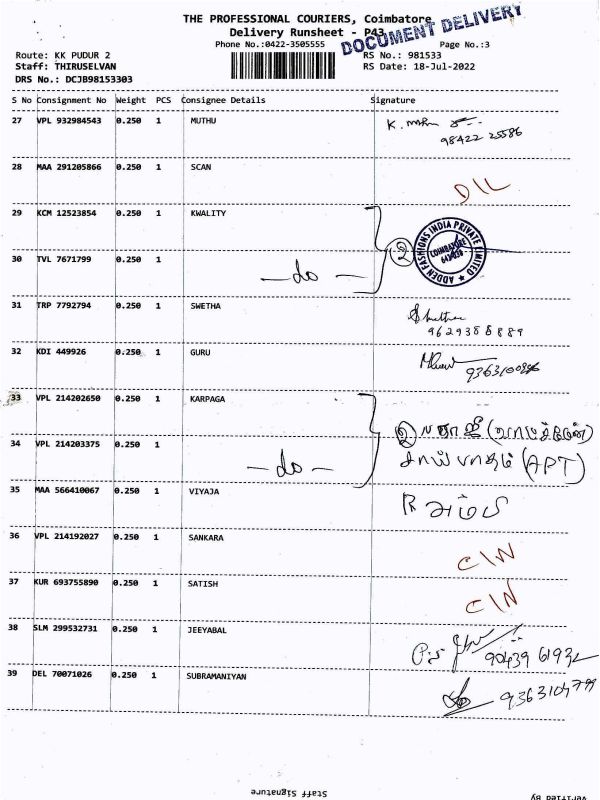 THE PROFESSIONAL COURIERS, Coimbatore
Delivery Runsheet - P43
DOCUMENT DELIVERY
Phone No.:0422-3505555
Page No.:3
Route: KK PUDUR 2
RS No.: 981533
Staff: THIRUSELVAN
RS Date: 18-Jul-2022
DRS No.: DCJB98153303
S No Consignment No Weight PCS Consignee Details Signature
27 VPL 932984543 0.250 1 MUTHU
98422 25586
28 MAA 291205866 0.250 1 SCAN D/L
29 KCM 12523854 0.250 1 KWALITY
ADDEN FASHIONS INDIA PRIVATE LIMITED
COIMBATORE
2
30 TVL 7671799 0.250 1 —do—
31 TRP 7792794 0.250 1 SWETHA
32 KDI 449926 0.250 1 GURU
33 VPL 214202650 0.250 1 KARPAGA
2
34 VPL 214203375 0.250 1 —do— (APT)
35 MAA 566410067 0.250 1 VIYAJA
36 VPL 214192027 0.250 1 SANKARA C/N
37 KUR 693755890 0.250 1 SATISH C/N
38 SLM 299532731 0.250 1 JEEYABAL
90439 61932
39 DEL 70071026 0.250 1 SUBRAMANIYAN
Staff Signature
Verified By